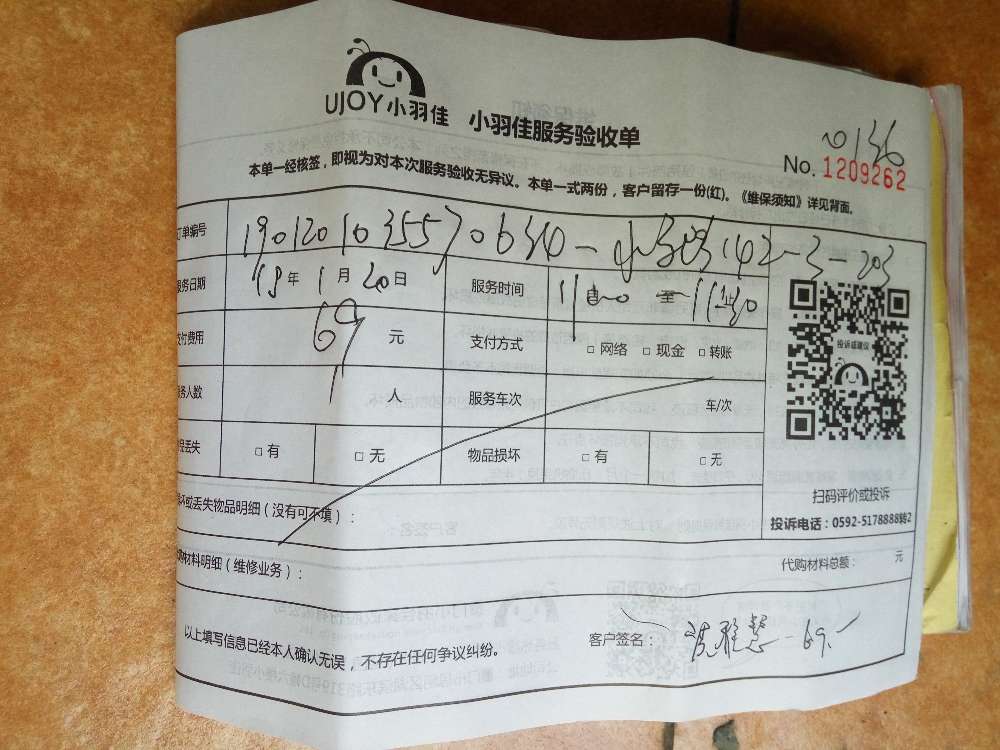 UJOY小羽佳 小羽佳服务验收单
0136
No. 1209262
本单一经核签，即视为对本次服务验收无异议。本单一式两份，客户留存一份(红)。《维保须知》详见背面。
订单编号 142-3-203
服务日期 19年1月20日 服务时间 至
支付费用 69 元 支付方式 □ 网络 □ 现金 □ 转账
服务人数 1 人 服务车次 车/次
丢失 □ 有 □ 无 物品损坏 □ 有 □ 无
投诉或建议
扫码评价或投诉
投诉电话：0592-5178888转2
损坏或丢失物品明细（没有可不填）：
材料明细（维修业务）：
代购材料总额： 元
以上填写信息已经本人确认无误，不存在任何争议纠纷。
客户签名： 雅慧 69